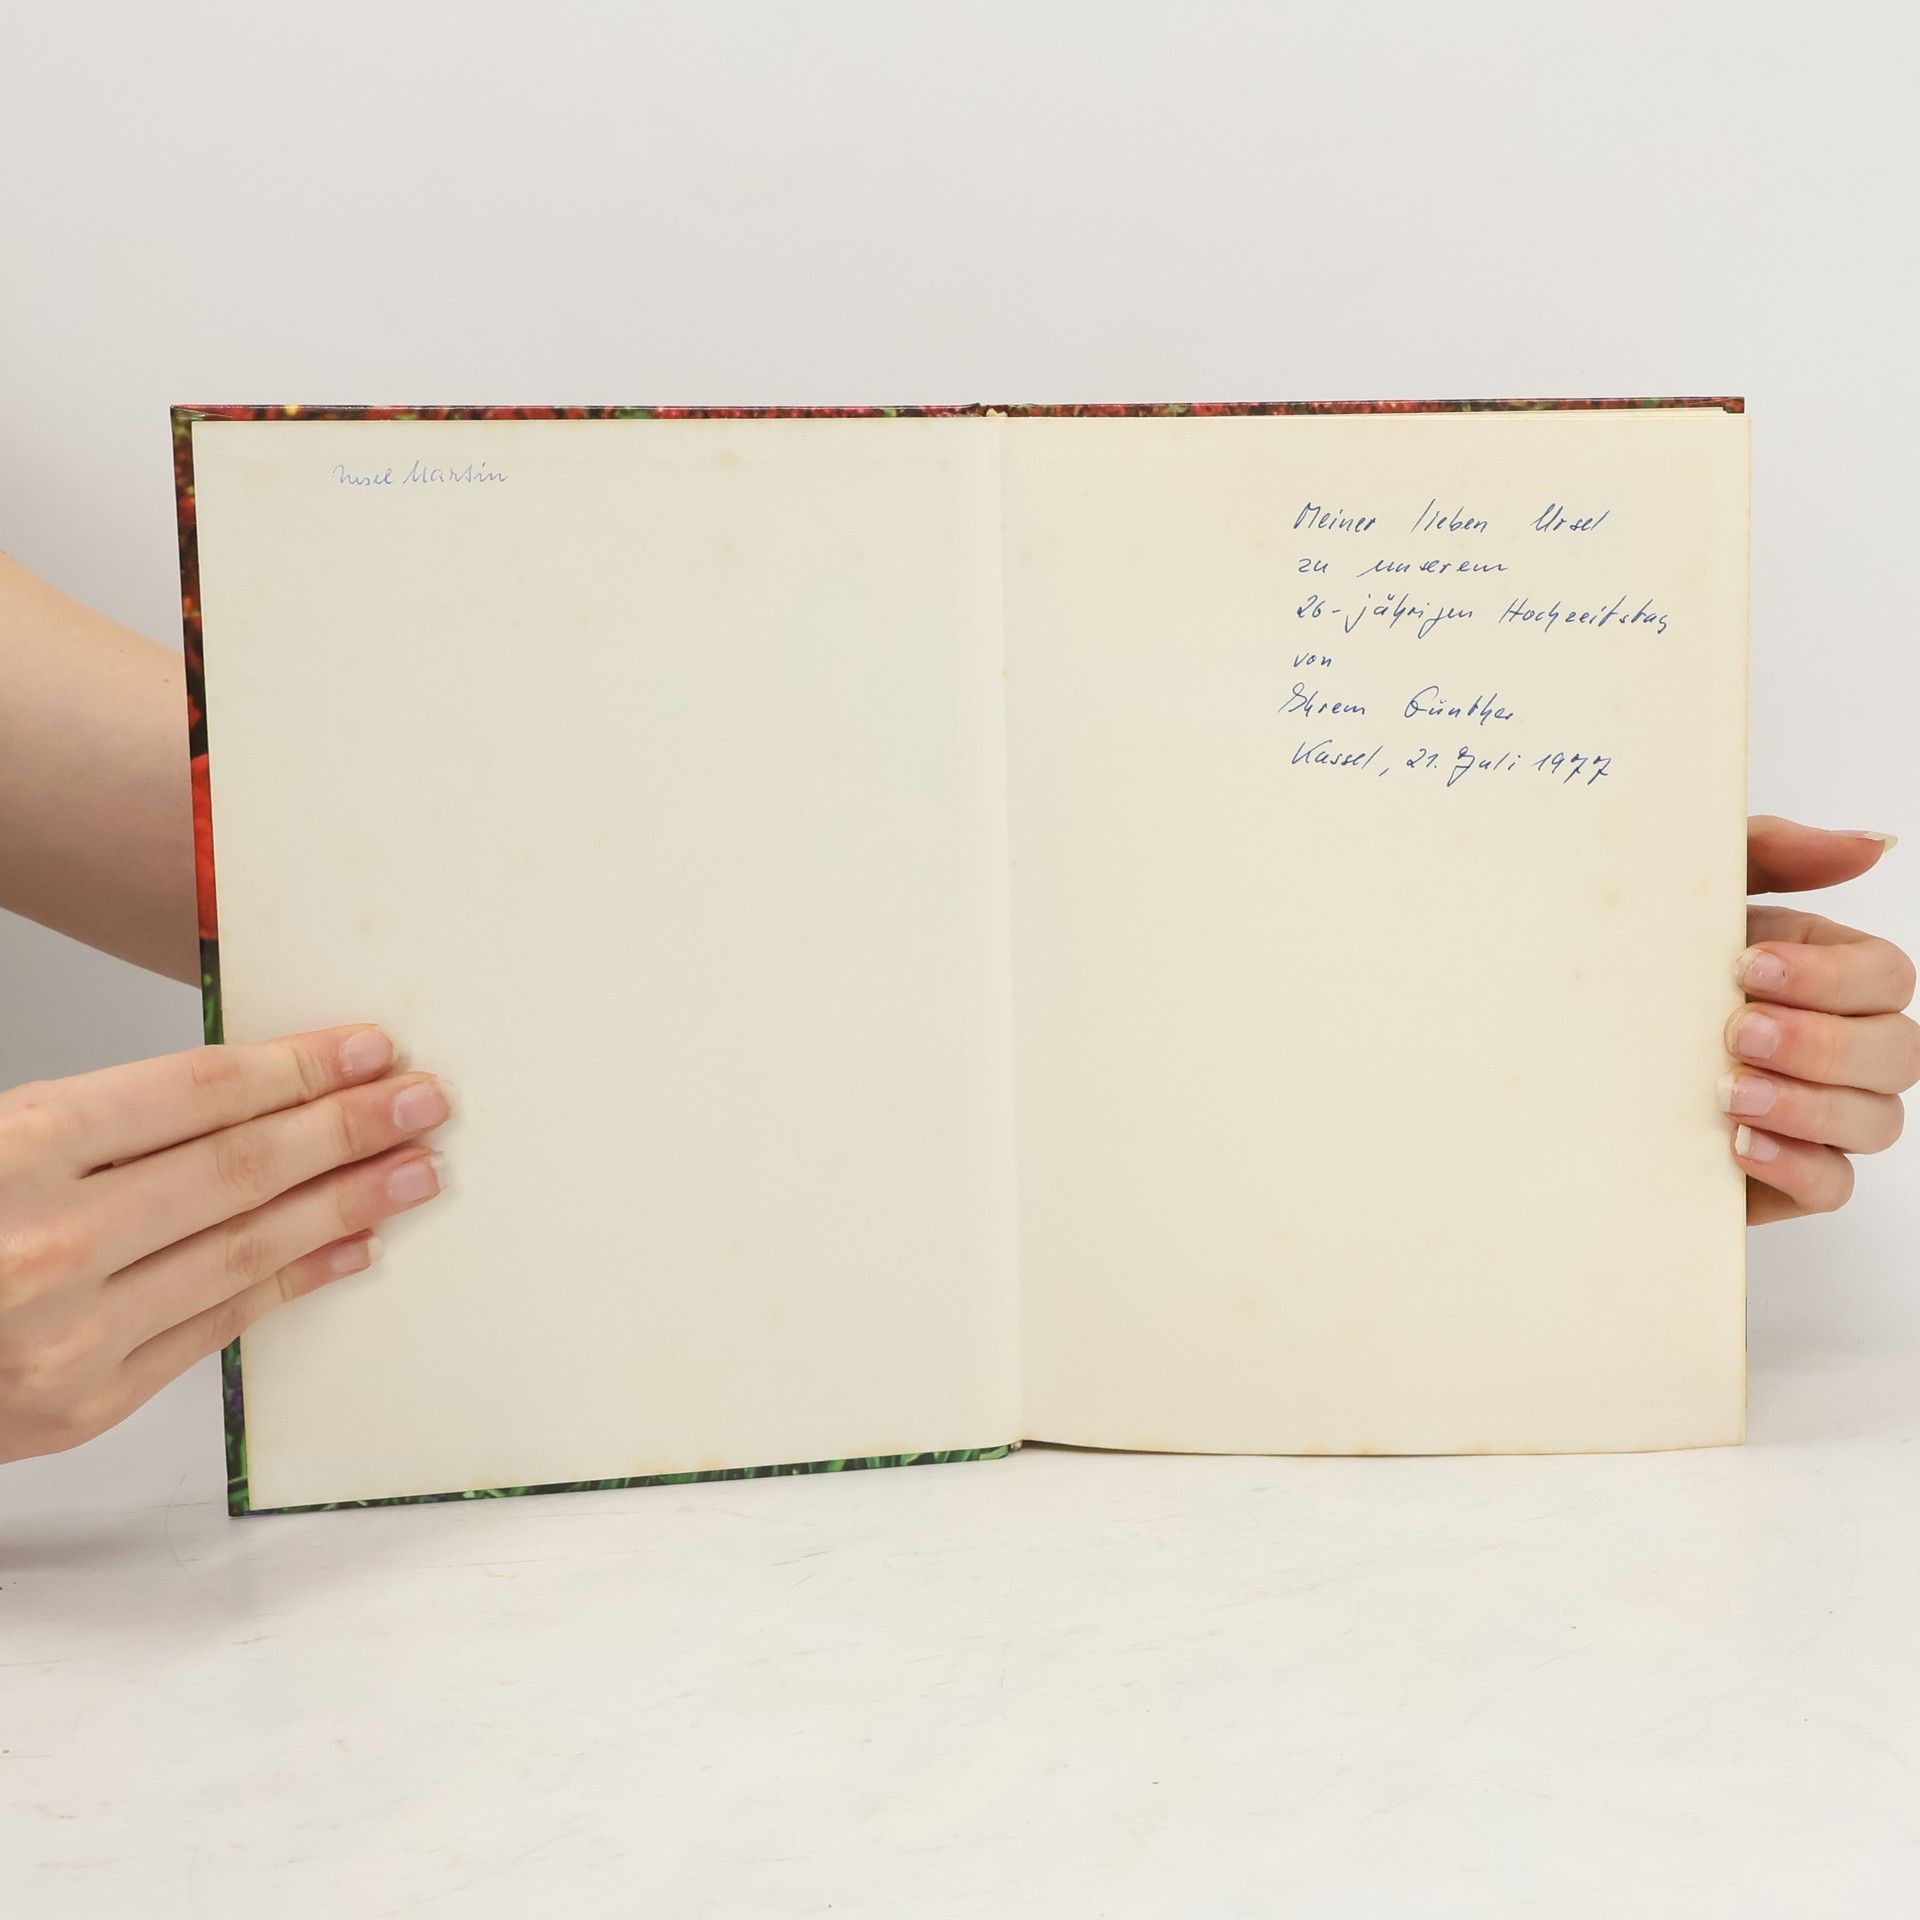 Ursel Martin
Meiner lieben Ursel
zu unserem
26-jährigen Hochzeitstag
von
Ihrem Günther
Kassel, 21. Juli 1977